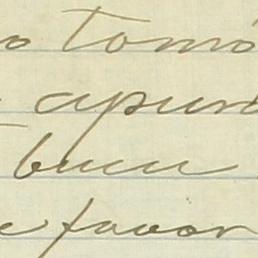 tomó
apun
buen
favor